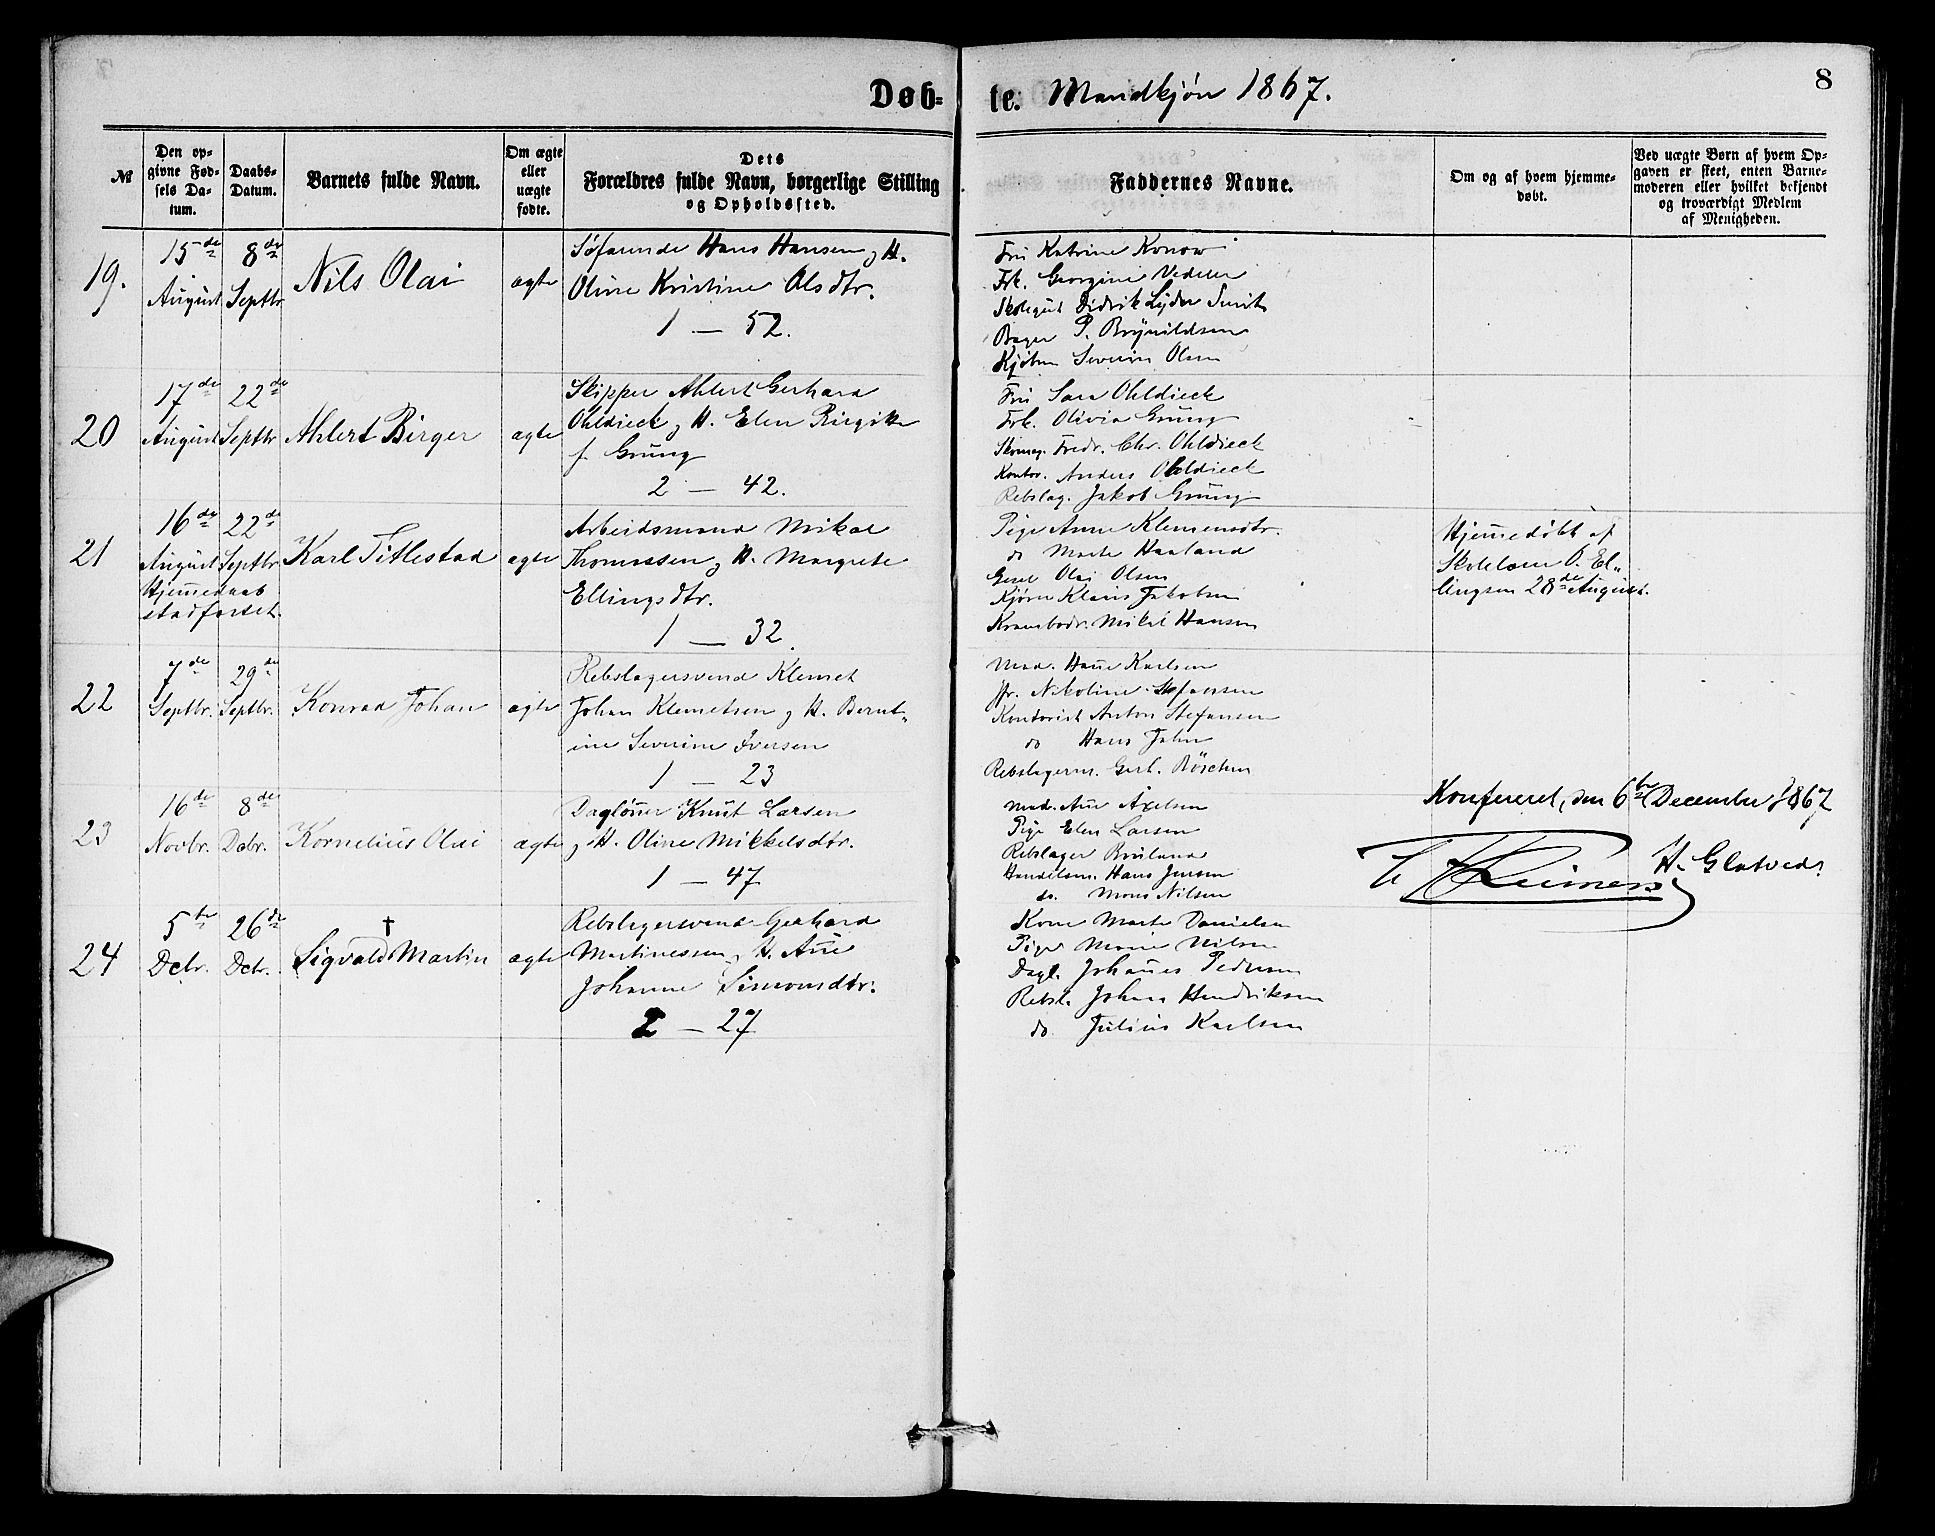 Døb-
te. Mandkjøn 1867.
8
№
Den op-
givne Fød-
sels Da-
tum.
Daabs-
Datum.
Barnets fulde Navn.
Om ægte
eller
uægte
fødte.
Dets
Forældres fulde Navn, borgerlige Stilling
og Opholdssted.
Faddernes Navne.
Om og af hvem hjemme-
døbt.
Ved uægte Børn af hvem Op-
gaven er skeet, enten Barne-
moderen eller hvilket bekjendt
og troværdigt Medlem
af Menigheden.
19.
15de
August
8de
Septbr
Nils Olai
ægte
Søfarende Hans Hansen og H.
Oline Kristine Olsdtr.
1 — 52.
Fru Katrine Konow
Frk. Georgine Vedeler
Didrik Lyder
Bager P. Brynildsen
Severin Olsen
20
17de
August
22de
Septbr
Ahlert Birger
ægte
Skipper Ahlert Gerhard
Ohldieck og H. Elen
f. Grung
2 — 42.
Fru Sara Ohldieck
Frk. Olivia Grung
Skomag. Fredr. Chr. Ohldieck
Kontor. Anders Ohldieck
Rebslag. Jakob Grung
21
16de
August
Hjemmedaab
stadfæstet.
22de
Septbr
Karl Titlestad
ægte
Arbeidsmand Mikal
Thomassen og H. Margrete
Ellingsdtr.
1 — 32.
Pige Anne Klemensdtr.
do Marte Haaland
Olai Olsen
Klaus Jakobsen
Krambodr. Mikal Hansen
Hjemmedøbt af
Skolelærer O. El-
lingsen 28de August.
22
7de
Septbr.
29de
Septbr.
Konrad Johan
ægte
Rebslagersvend Klemet
Johan Klemetsen og H. Bernt-
ine Severine Iversen
1 — 23
Mad. Hanne Karlsen
Jfr. Nikoline Stefansen
Kontorist Anton Stefansen
do Hans Jahn
Rebslagerm. Gerh.
23
16de
Novbr.
8de
Debr.
Kornelius Olai
ægte
Dagløner Knut Larsen
og H. Oline Mikkelsdtr.
1 — 47
Mad. Ane Axelsen
Pige Elen Larsen
Rebslager Bruland
Handelsm. Hans Jensen
do. Mons Nilsen
Konfereret, den 6te December 1867
H. Glatved.
24
5te
Debr.
26de
Debr.
†
Sigvald Martin
ægte
Rebslagersvend Gerhard
Martinessen og H. Ane
Johanne Simonsdtr.
2 — 27
Kone Marte Danielsen
Pige Marie Nilsen
Dagl. Johannes Pedersen
Rebsl. Johan Hendriksen
do. Julius Karlsen